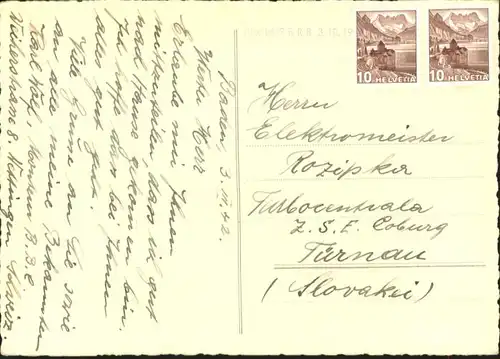 Baden, 3. III. 42.
Werter Herr
Erlaube mir Ihnen
mitzuteilen, dass ich gut
nach Hause gekommen bin.
Ich hoffe, dass bei Ihnen
alles gut geht.
Viele Grüsse an Sie sowie
an alle meine Bekannten
Karl Wolf B.B.C
8 Wettingen Schweiz
3. III. 19
10 HELVETIA
10 HELVETIA
Herrn
Elektromeister
Rozipka
Turbocentrala
Z. S. E. Coburg
Tŭrnau
(Slovakei)